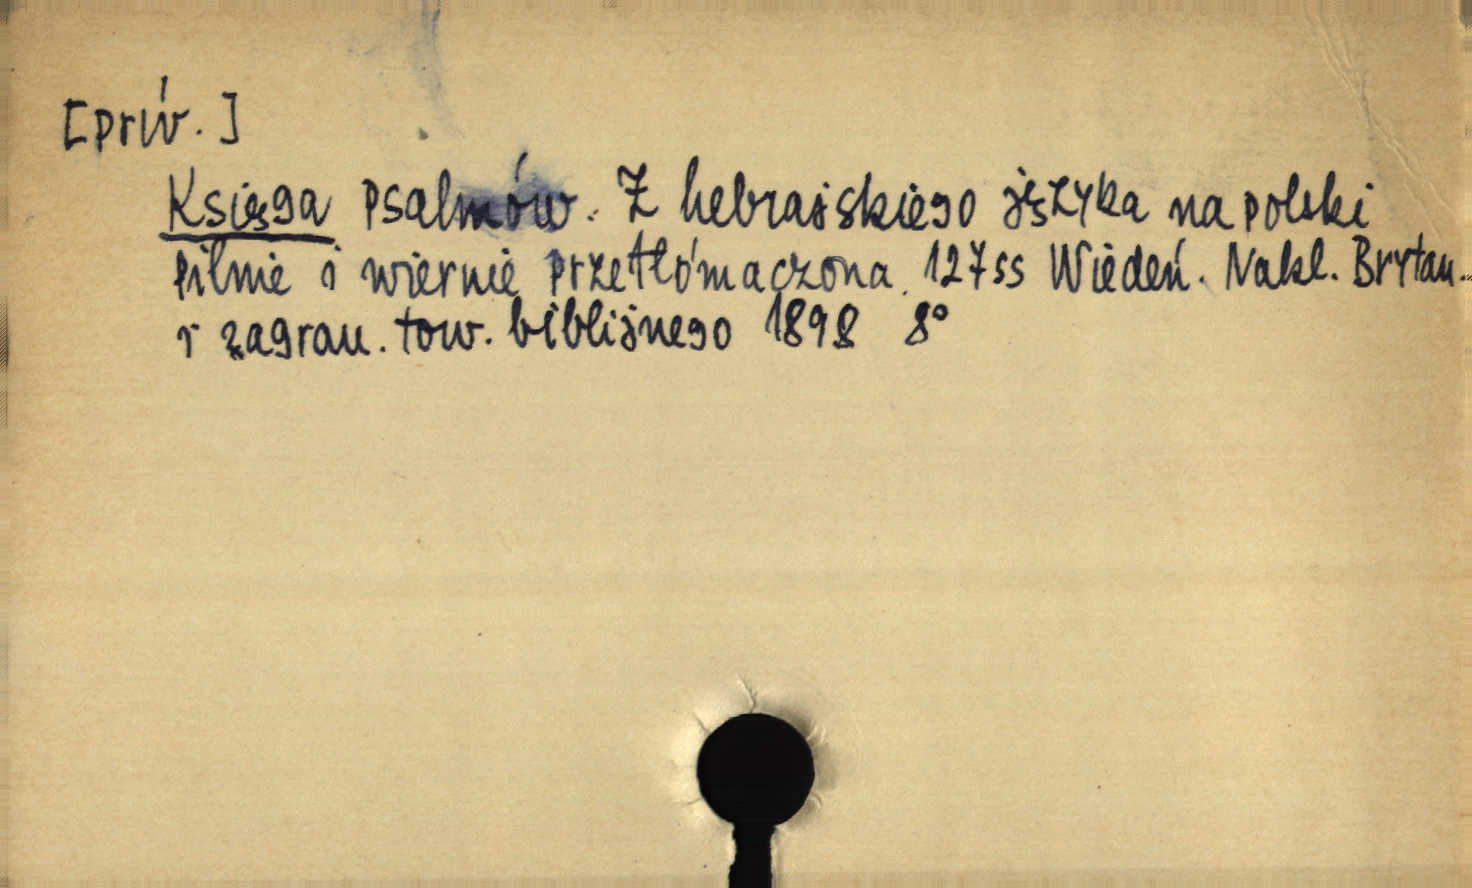 [priv.]
Księga psalmów. Z hebrajskiego języka na polski
pilnie i wiernie przetłómaczona. 127ss Wiedeń. Nakl. Brytan.
i zagran. tow. biblijnego 1898 8°